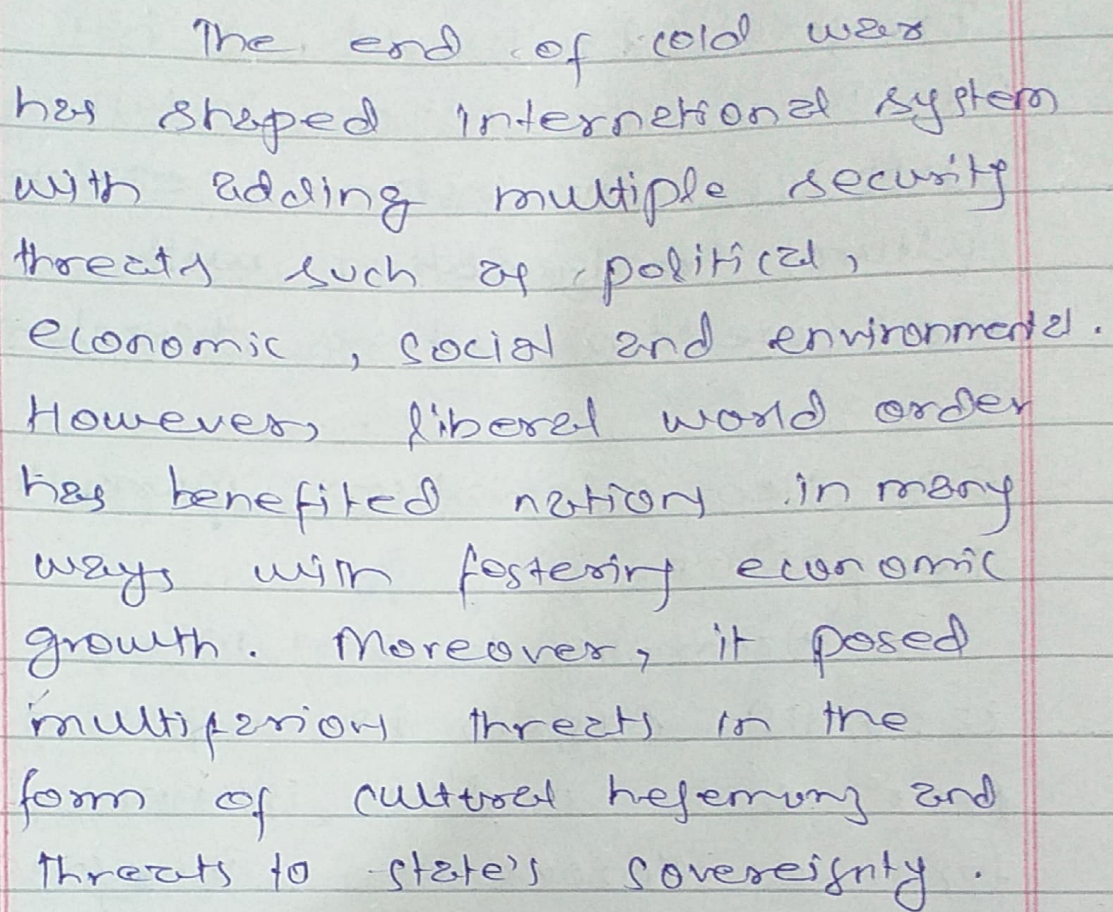 The end of cold war
has shaped international system
with adding multiple security
threats such as political,
economic, social and environmental.
However, liberal world order
has benefited nations in many
ways with fostering economic
growth. Moreover, it posed
multifarious threats in the
form of cultural hegemony and
threats to state's sovereignty.